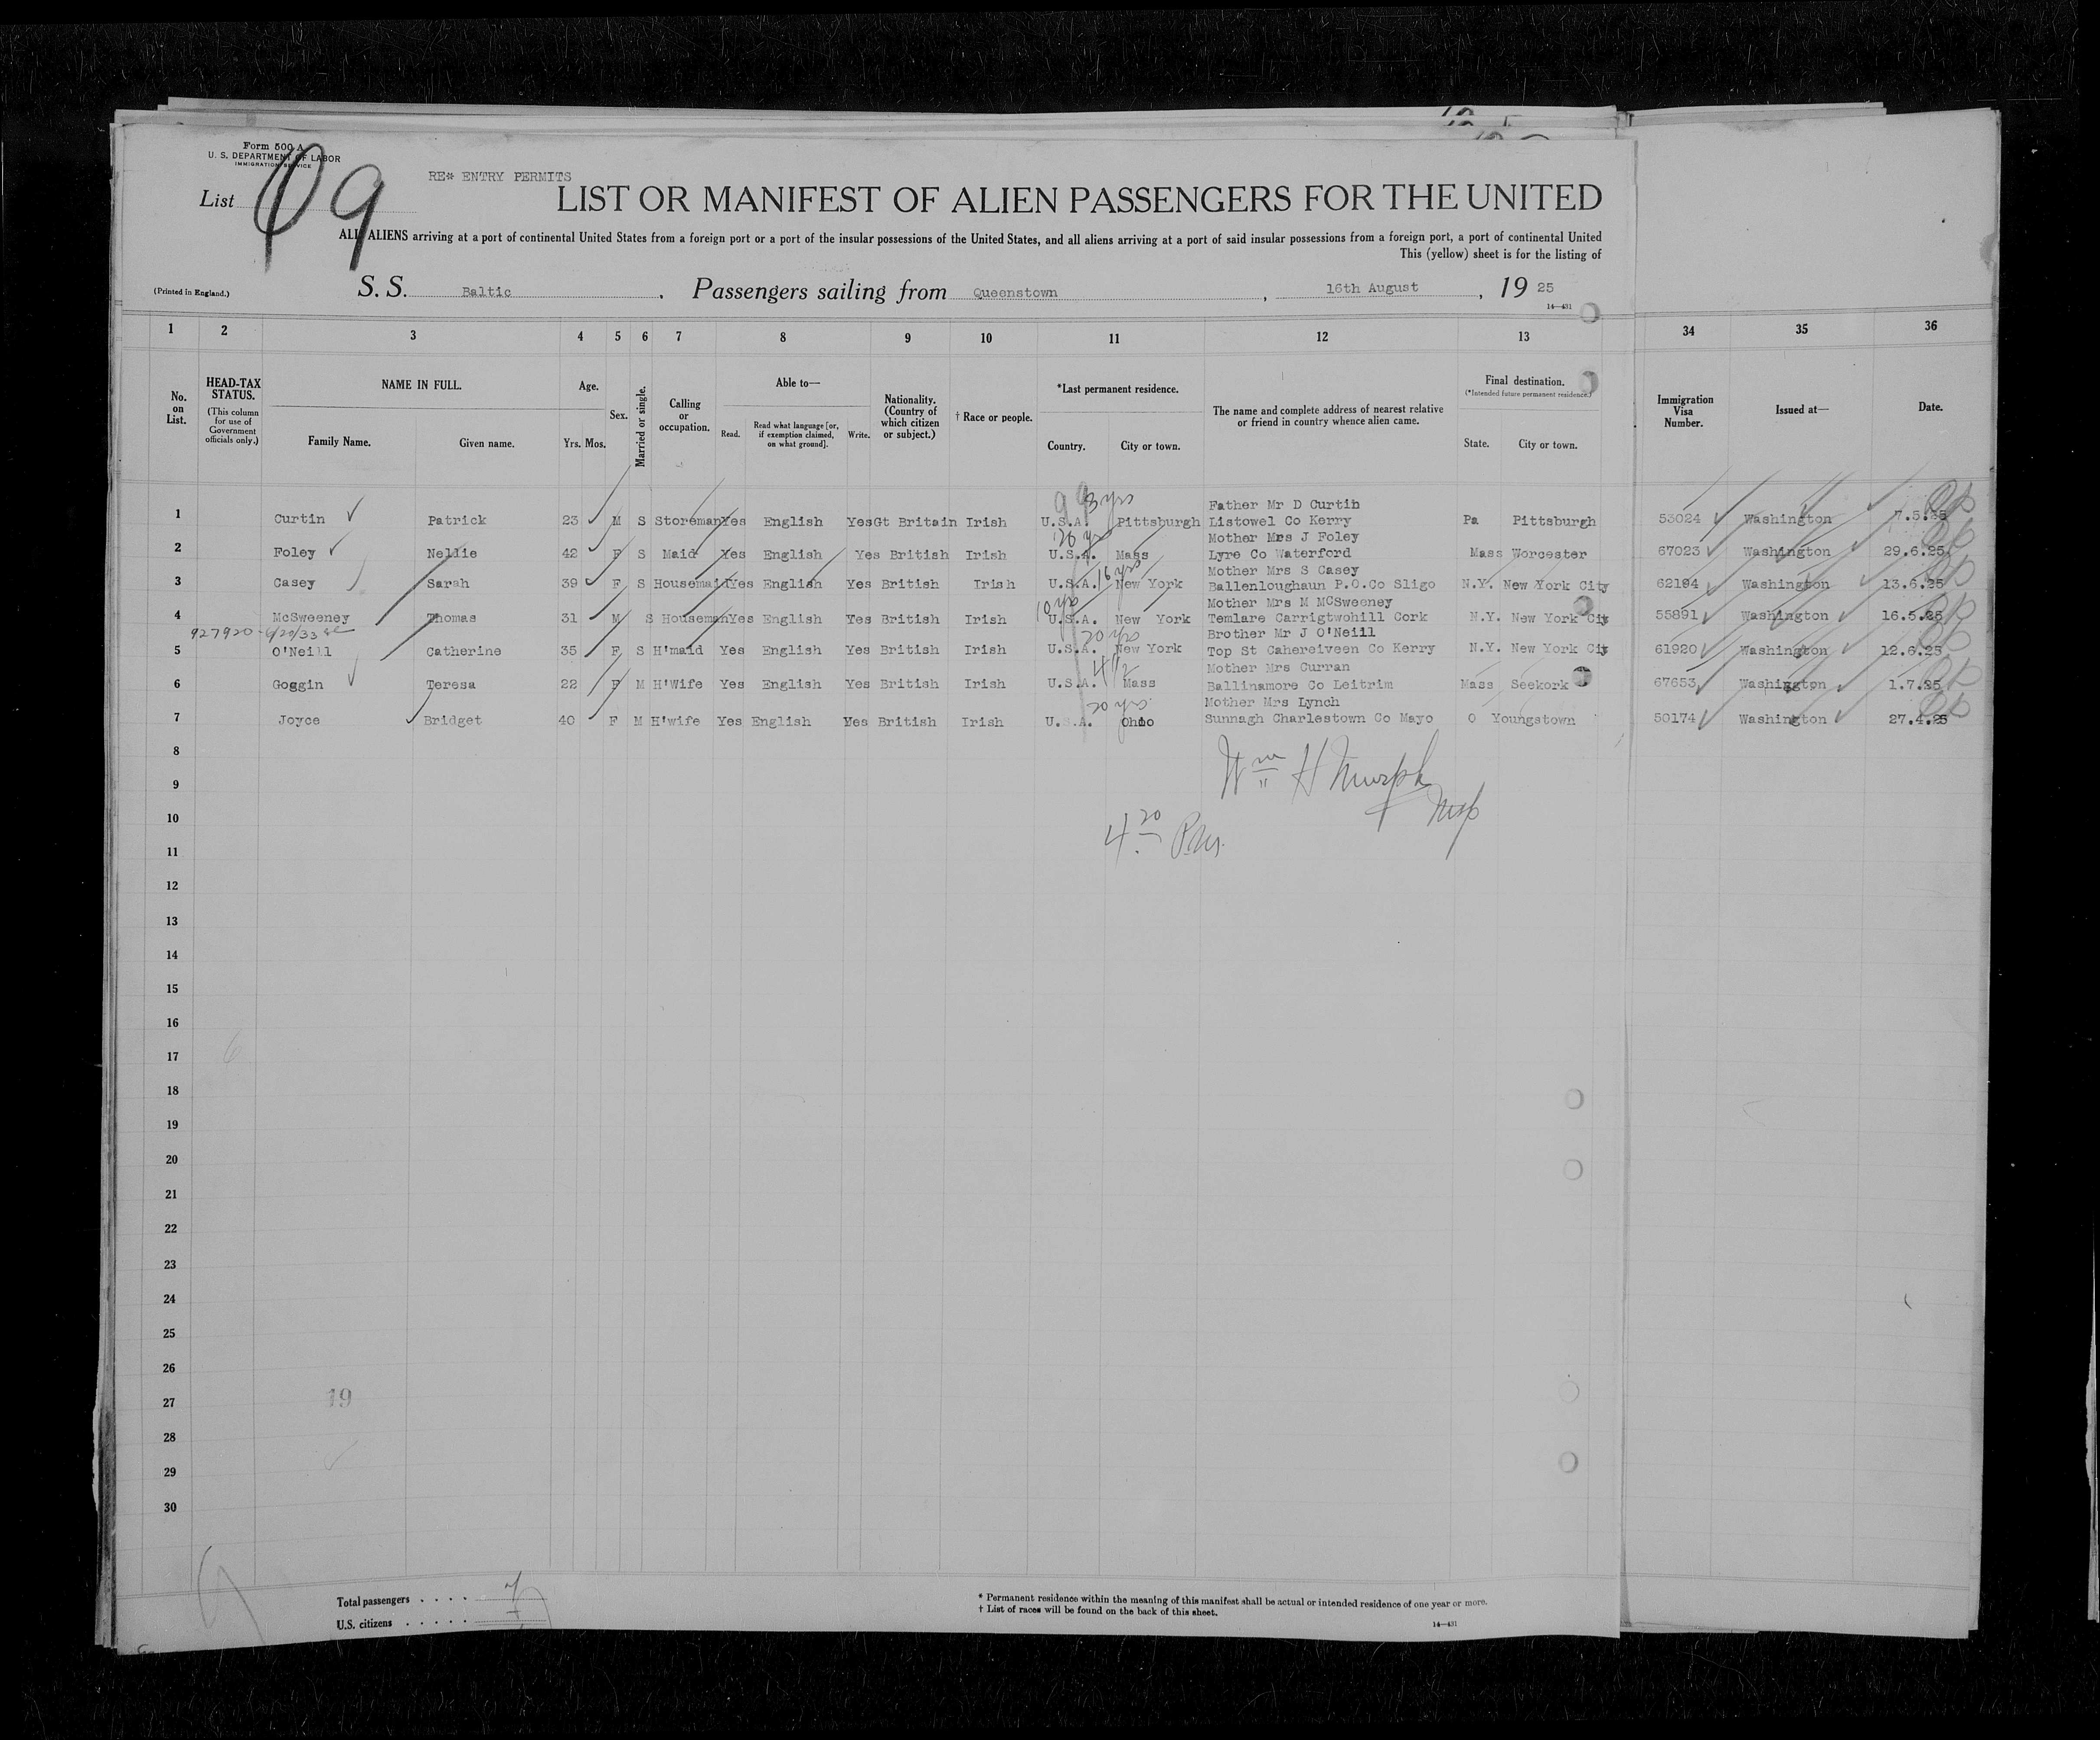 Form 500 A
U. S. DEPARTMENT OF LABOR
IMMIGRATION SERVICE
List 9
RE* ENTRY PERMITS
LIST OR MANIFEST OF ALIEN PASSENGERS FOR THE UNITED
ALL ALIENS arriving at a port of continental United States from a foreign port or a port of the insular possessions of the United States, and all aliens arriving at a port of said insular possessions from a foreign port, a port of continental United
This (yellow) sheet is for the listing of
(Printed in England.)
S. S. Baltic, Passengers sailing from Queenstown, 16th August, 19 25
14—431
1 2 3 4 5 6 7 8 9 10 11 12 13 34 35 36
No. on List.
HEAD-TAX STATUS.
(This column for use of Government officials only.)
NAME IN FULL.
Family Name. Given name.
Age.
Yrs. Mos.
Sex.
Married or single.
Calling or occupation.
Able to—
Read. Read what language [or, if exemption claimed, on what ground]. Write.
Nationality. (Country of which citizen or subject.)
† Race or people.
*Last permanent residence.
Country. City or town.
The name and complete address of nearest relative or friend in country whence alien came.
Final destination.
(*Intended future permanent residence.)
State. City or town.
Immigration Visa Number.
Issued at—
Date.
8 yrs Father Mr D Curtin
1 Curtin Patrick 23 M S Storeman Yes English Yes Gt Britain Irish U.S.A. Pittsburgh Listowel Co Kerry Pa Pittsburgh 53024 Washington 7.5.25
Mother Mrs J Foley
2 Foley Nellie 42 F S Maid Yes English Yes British Irish U.S.A. Mass Lyre Co Waterford Mass Worcester 67023 Washington 29.6.25
16 yrs Mother Mrs S Casey
3 Casey Sarah 39 F S Housemaid Yes English Yes British Irish U.S.A. New York Ballenloughaun P.O.Co Sligo N.Y. New York City 62194 Washington 13.6.25
10 yrs Mother Mrs M McSweeney
4 McSweeney Thomas 31 M S Houseman Yes English Yes British Irish U.S.A. New York Temlare Carrigtwohill Cork N.Y. New York Cit 55891 Washington 16.5.25
927920 - 6/20/33
20 yrs Brother Mr J O'Neill
5 O'Neill Catherine 35 F S H'maid Yes English Yes British Irish U.S.A. New York Top St Cahereiveen Co Kerry N.Y. New York City 61920 Washington 12.6.25
4 1/2 Mother Mrs Curran
6 Goggin Teresa 22 F M H'Wife Yes English Yes British Irish U.S.A. Mass Ballinamore Co Leitrim Mass Seekork 67653 Washington 1.7.25
20 yrs. Mother Mrs Lynch
7 Joyce Bridget 40 F M H'wife Yes English Yes British Irish U.S.A. Ohio Sunnagh Charlestown Co Mayo O Youngstown 50174 Washington 27.4.25
8
Wm H Murphy Insp
9
10
4.20 P.M.
11
12
13
14
15
16
17
18
19
20
21
22
23
24
25
26
27
19
28
29
30
Total passengers . . . . 7
U.S. citizens . . . . .
* Permanent residence within the meaning of this manifest shall be actual or intended residence of one year or more.
† List of races will be found on the back of this sheet.
14—431